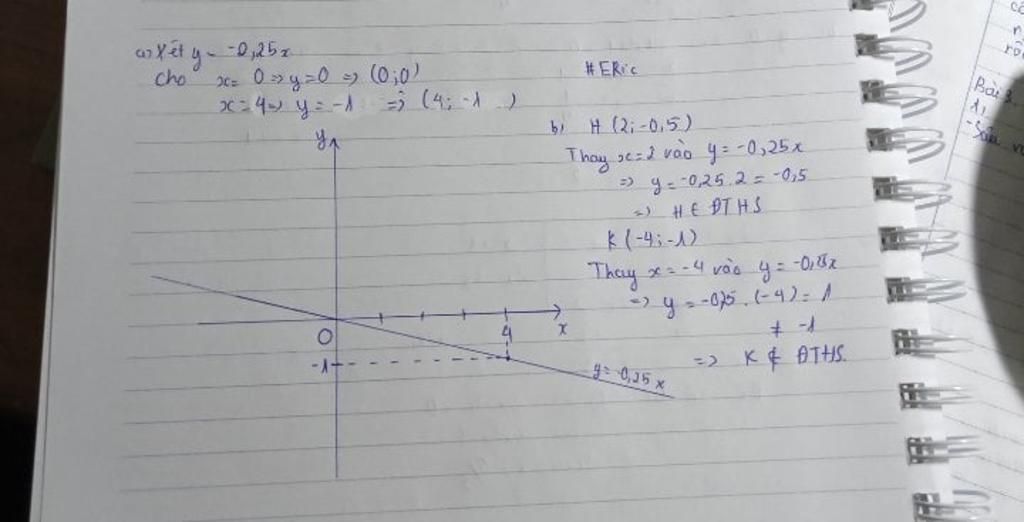 a) Xét y = -0,25x
Cho x = 0 => y = 0 => (0;0)
x = 4 => y = -1 => (4; -1 )
#ERic
b) H (2; -0,5)
Thay x = 2 vào y = -0,25x
=> y = -0,25 . 2 = -0,5
=> H ∈ ĐTHS
K (-4; -1)
Thay x = -4 vào y = -0,25x
=> y = -0,25 . (-4) = 1
≠ -1
=> K ∉ ĐTHS.
y
O
4
x
-1
y = -0,25x
Bài 3.
1,